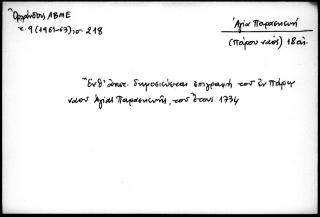 Ὀρλάνδος ΑΒΜΕ
τ. 9 (1961-63) σ. 218
Ἁγία Παρασκευή
(Πάρου ναός) 18 αἰ.
Ἔνθ' ἀνωτ. δημοσιεύεται ἐπιγραφή τοῦ ἐν Πάρῳ
ναοῦ Ἁγίας Παρασκευῆς, τοῦ ἔτους 1734